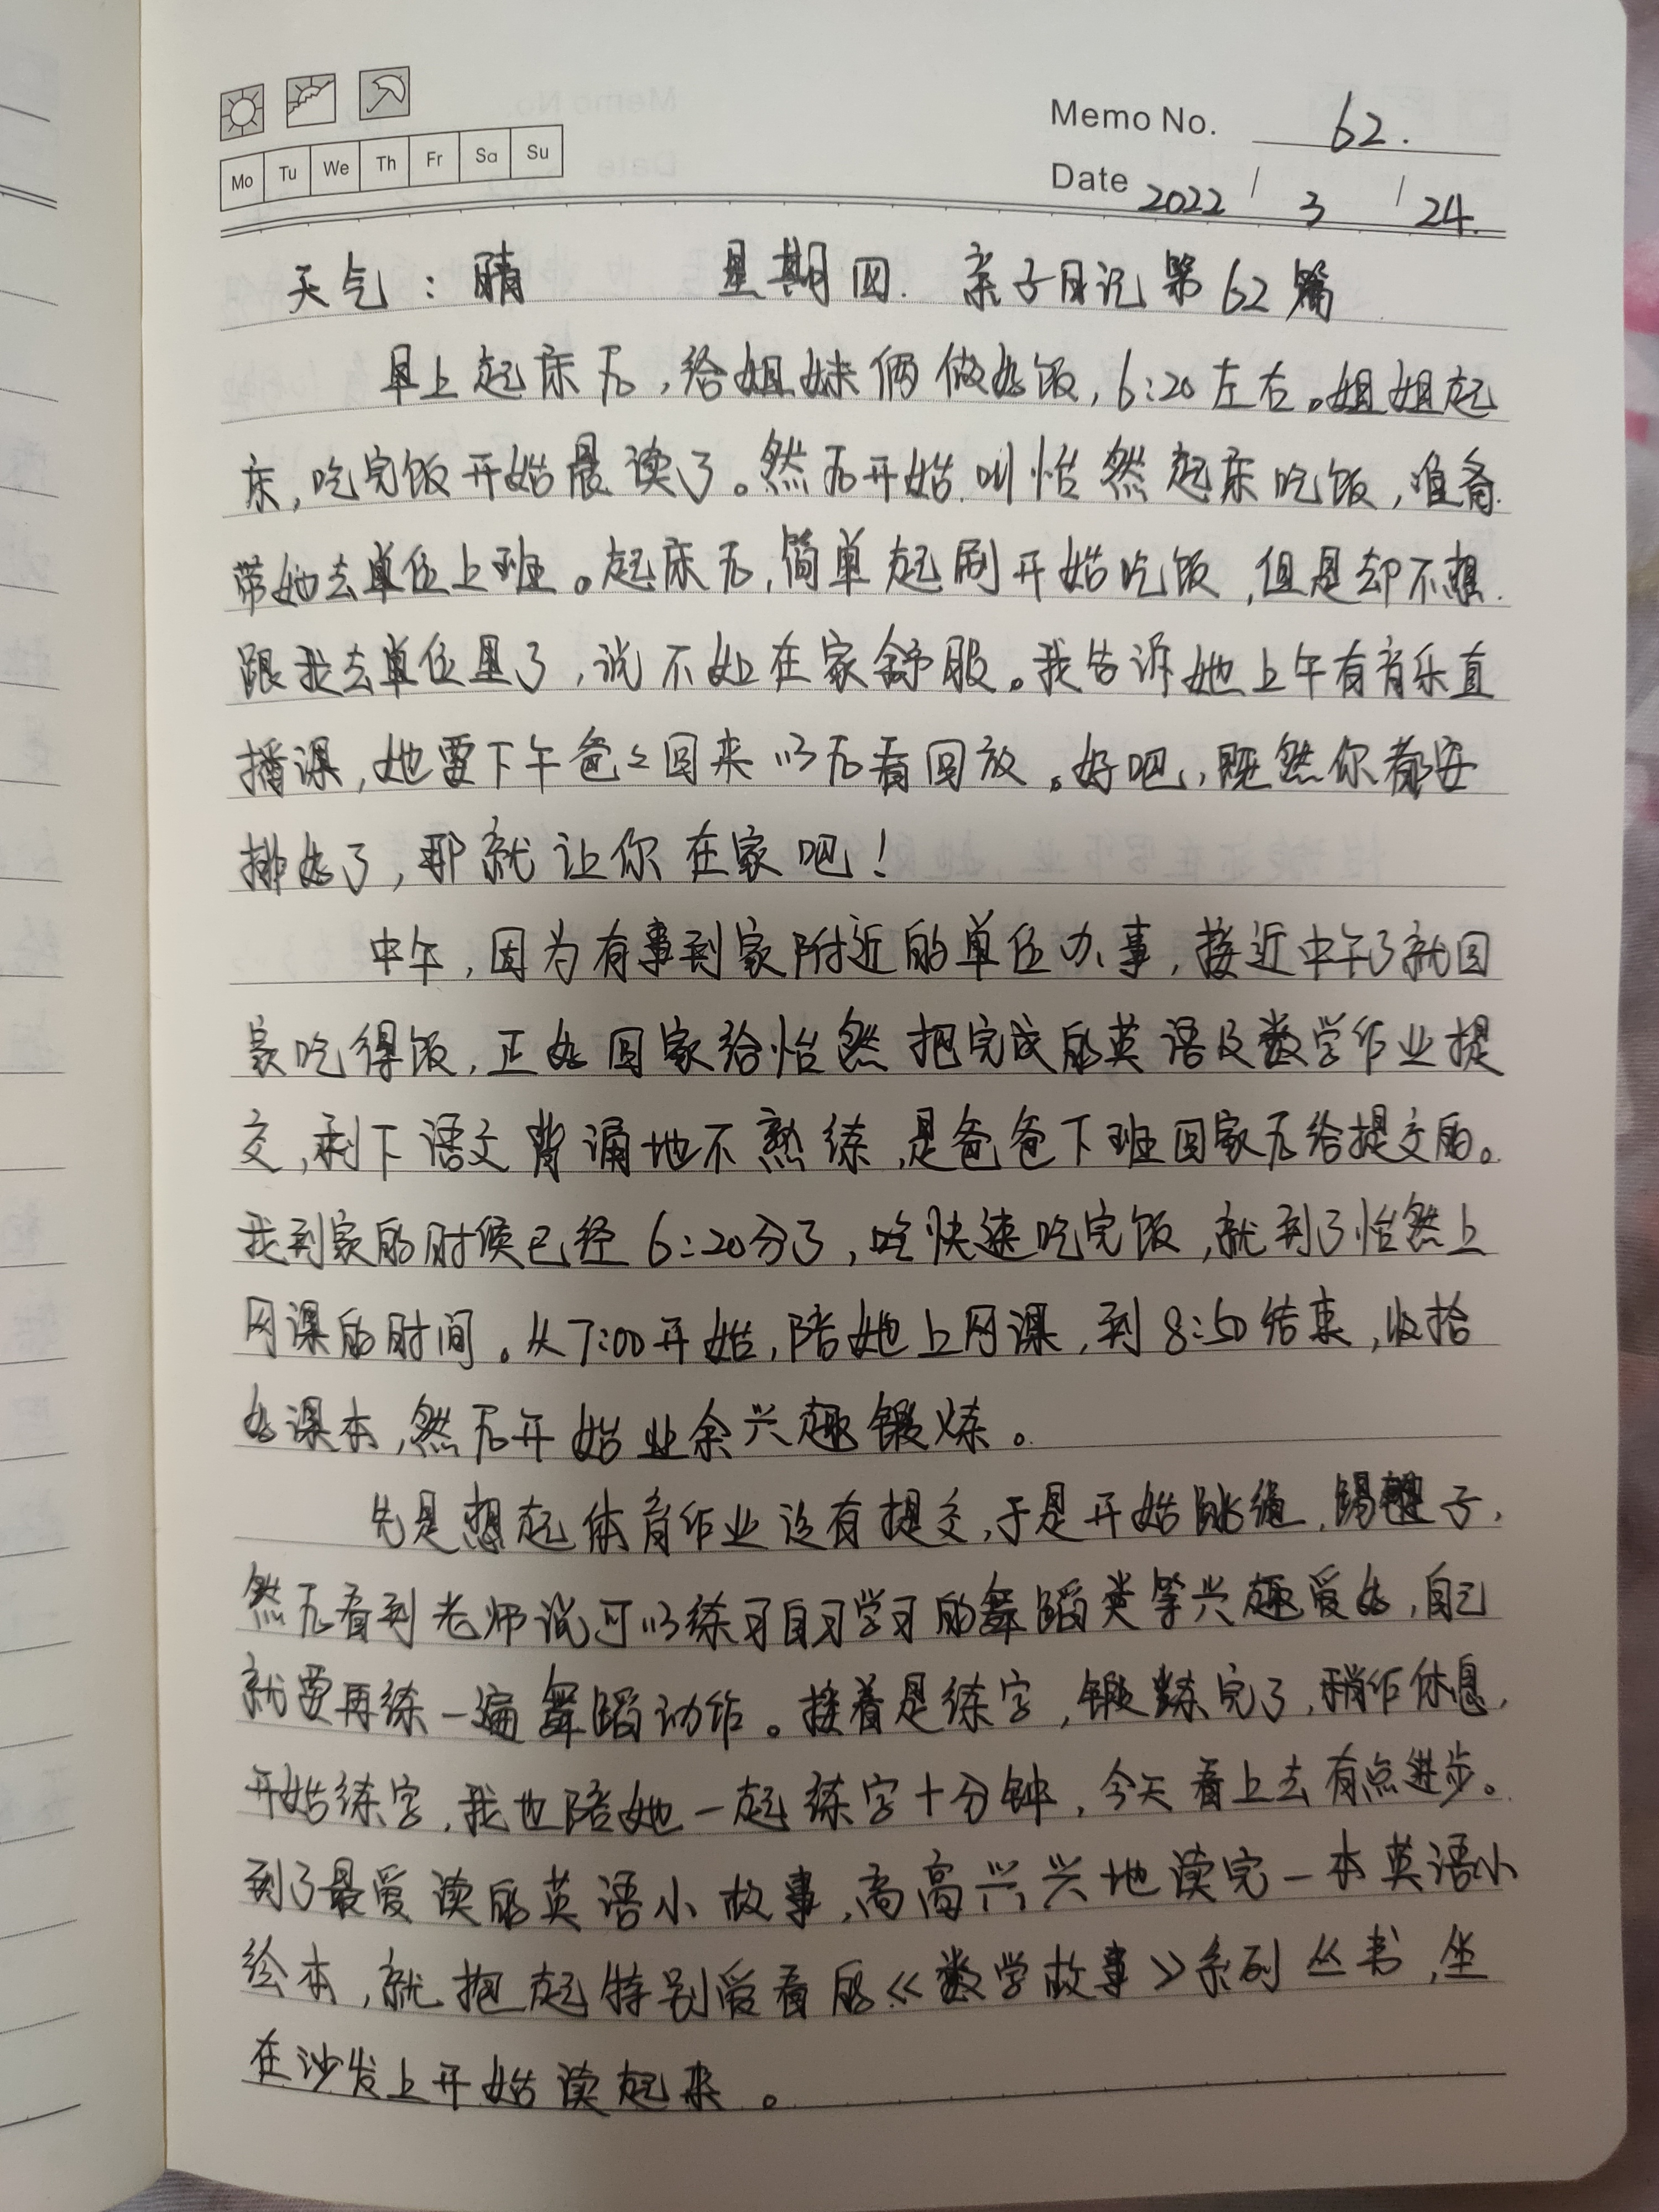 Memo No. 62.
Mo Tu We Th Fr Sa Su
Date 2022 / 3 / 24.
天气：晴 星期四. 亲子日记第62篇
早上起床后，给姐妹俩做好饭，6:20左右。姐姐起
床，吃完饭开始晨读了。然后开始叫怡然起床吃饭，准备
带她去单位上班。起床后，简单起刷开始吃饭，但是却不想
跟我去单位里了，说不如在家舒服。我告诉她上午有音乐直
播课，她要下午爸爸回来以后看回放。好吧，既然你都安
排好了，那就让你在家吧！
中午，因为有事到家附近的单位办事，接近中午了就回
家吃得饭，正好回家给怡然把完成的英语及数学作业提
交，剩下语文背诵地不熟练，是爸爸下班回家后给提交的。
我到家的时候已经6:20分了，吃快速吃完饭，就到了怡然上
网课的时间。从7:00开始，陪她上网课，到8:50结束，收拾
好课本，然后开始业余兴趣锻炼。
先是想起体育作业没有提交，于是开始跳绳，踢毽子，
然后看到老师说可以练习自习学习的舞蹈类等兴趣爱好，自己
就要再练一遍舞蹈动作。接着是练字，锻炼完了，稍作休息，
开始练字，我也陪她一起练字十分钟，今天看上去有点进步。
到了最爱读的英语小故事，高高兴兴地读完一本英语小
绘本，就抱起特别爱看的《数学故事》系列丛书，坐
在沙发上开始读起来。